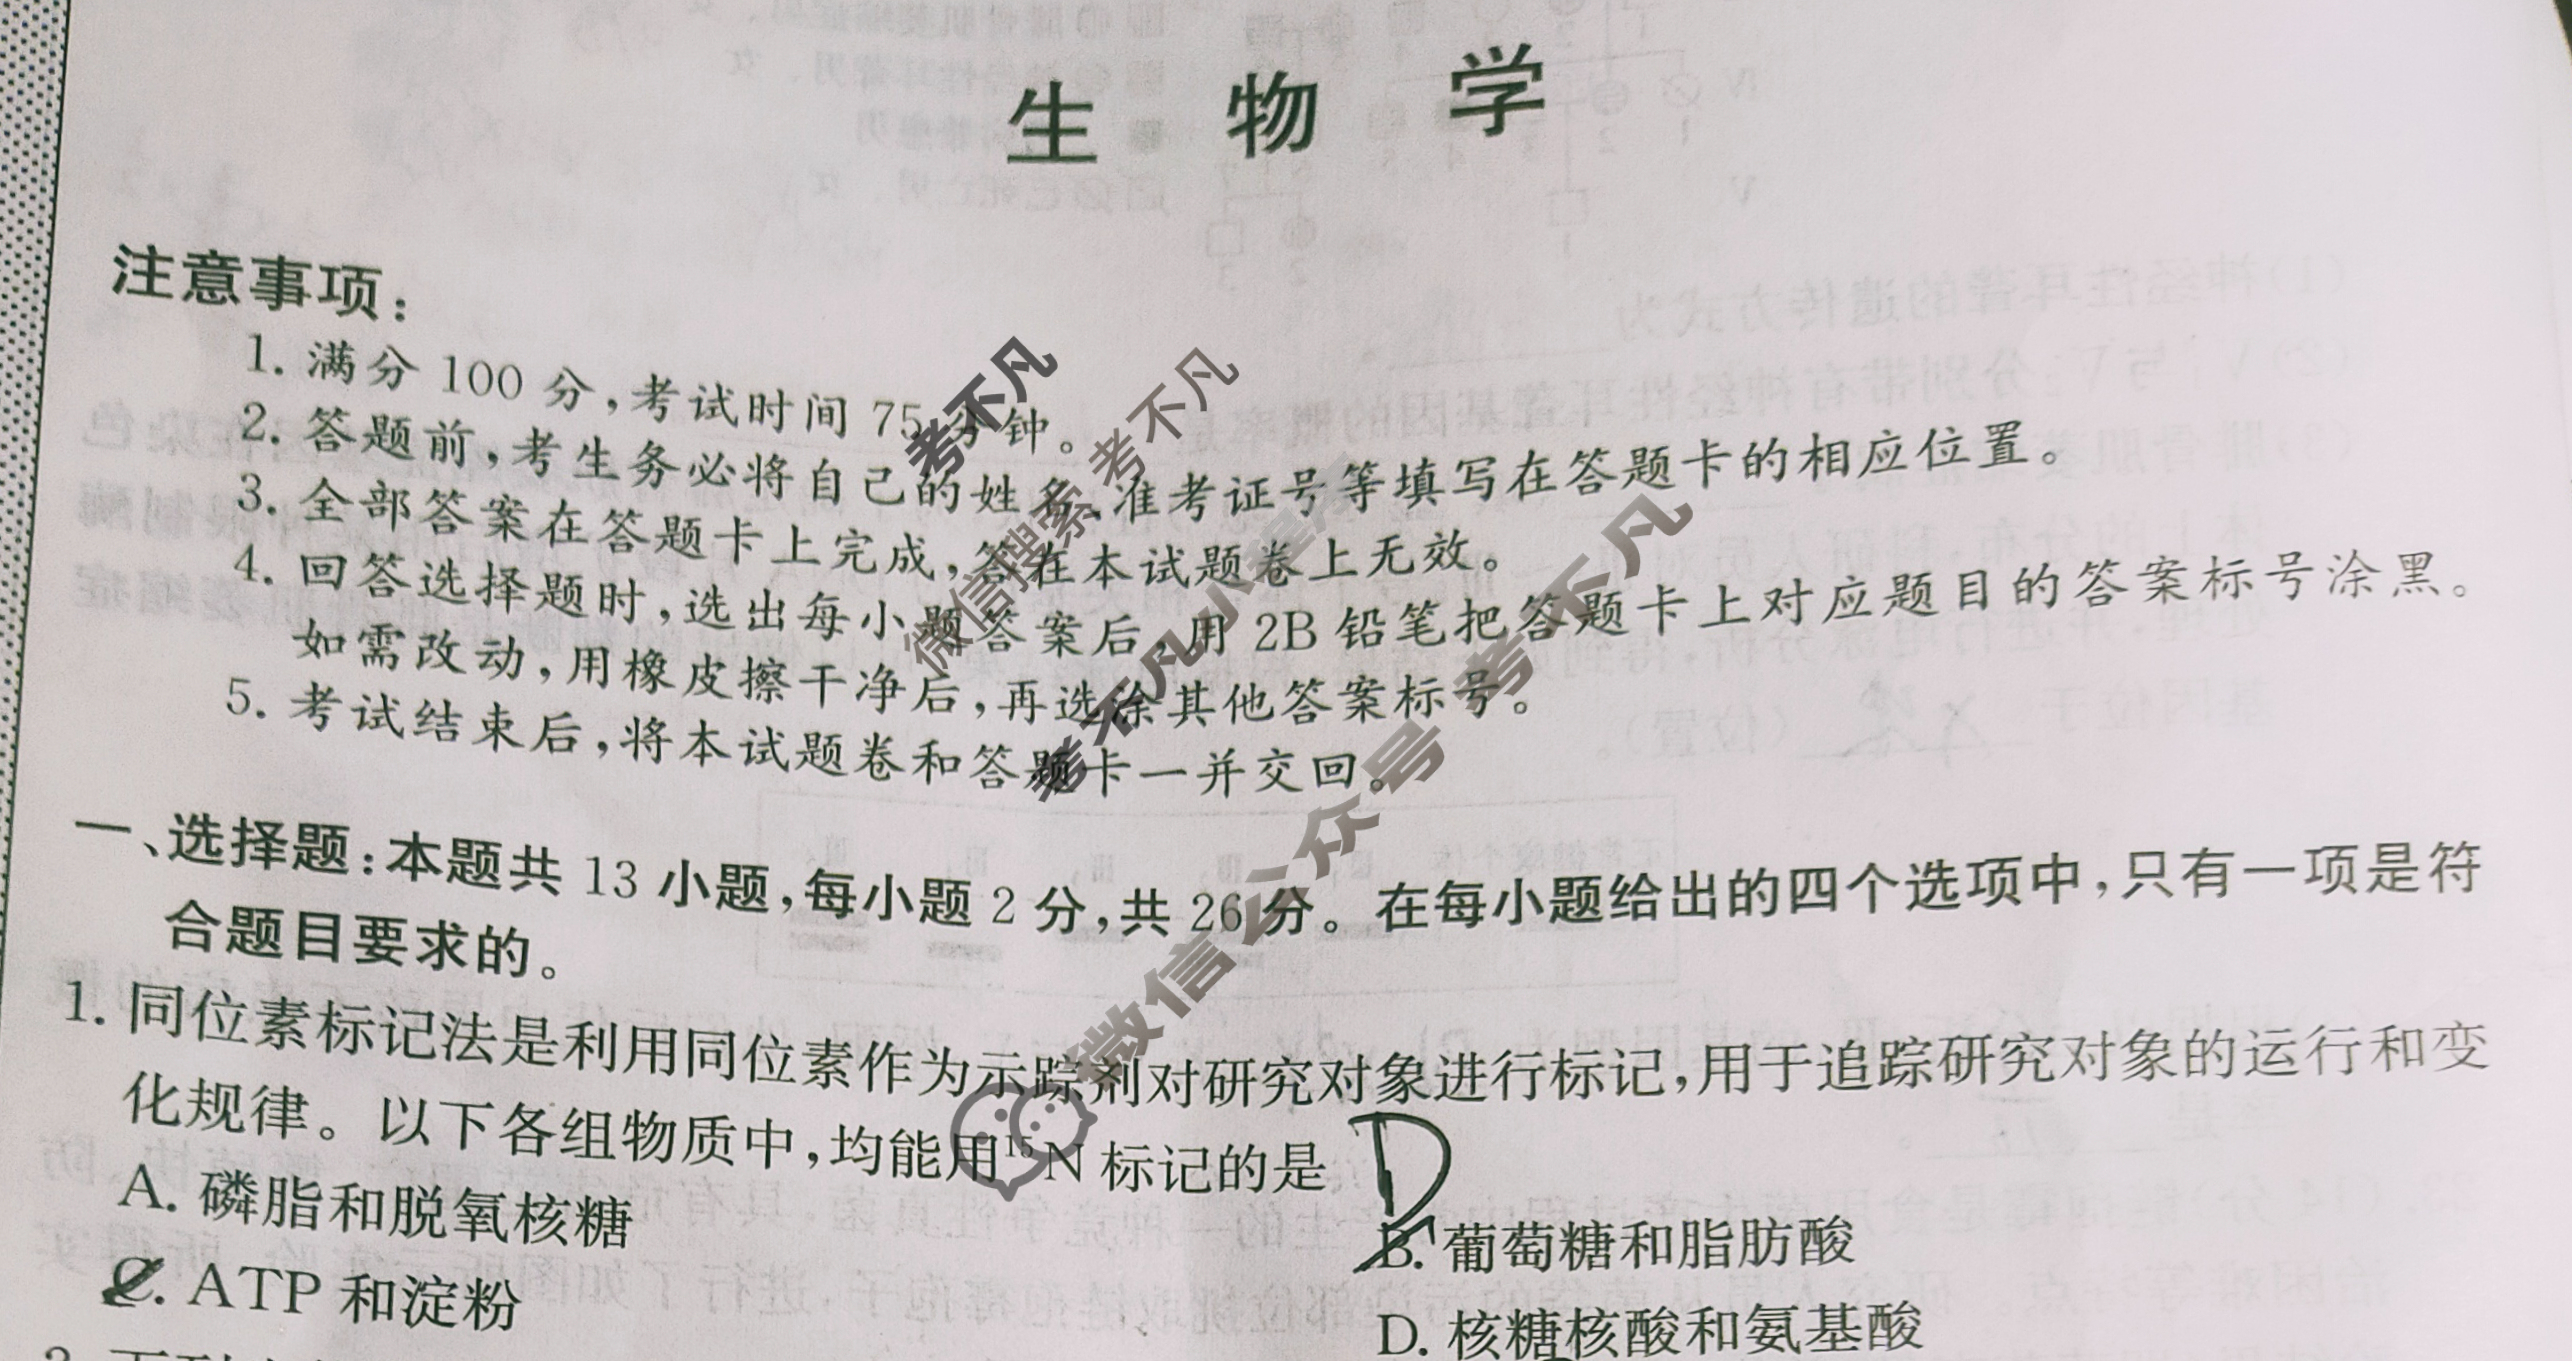 生 物 学
注意事项:
1. 满分 100 分,考试时间 75 分钟。
2. 答题前,考生务必将自己的姓名、准考证号等填写在答题卡的相应位置。
3. 全部答案在答题卡上完成,答在本试题卷上无效。
4. 回答选择题时,选出每小题答案后,用 2B 铅笔把答题卡上对应题目的答案标号涂黑。
如需改动,用橡皮擦干净后,再选涂其他答案标号。
5. 考试结束后,将本试题卷和答题卡一并交回。
一、选择题:本题共 13 小题,每小题 2 分,共 26 分。在每小题给出的四个选项中,只有一项是符
合题目要求的。
1. 同位素标记法是利用同位素作为示踪剂对研究对象进行标记,用于追踪研究对象的运行和变
化规律。以下各组物质中,均能用¹⁵N 标记的是 D
A. 磷脂和脱氧核糖
B. 葡萄糖和脂肪酸
C. ATP 和淀粉
D. 核糖核酸和氨基酸
考不凡
微信搜索 考不凡
考不凡小程序
微信公众号 考不凡